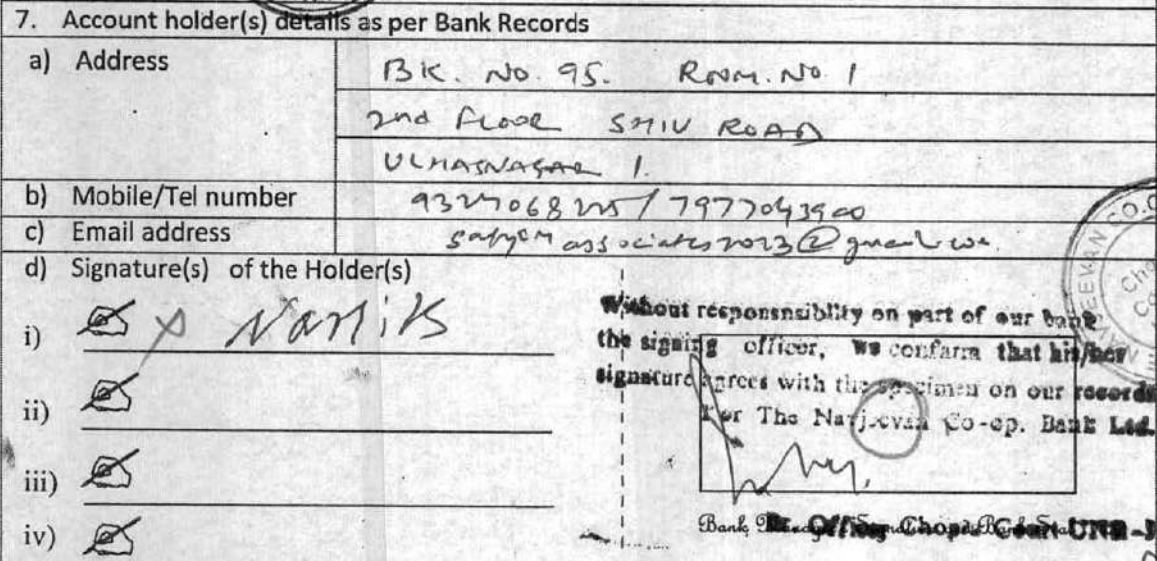 7. Account holder(s) details as per Bank Records
a) Address
BK. No. 95. Room. No 1
2nd Floor SHIV ROAD
ULHASNAGAR 1.
b) Mobile/Tel number
7977043900
c) Email address
d) Signature(s) of the Holder(s)
i)
ii)
iii)
iv)
Without responsnsiblity on part of our bank
the signing officer, we confarm that his/her
signature agrees with the specimen on our records
For The Navjeevan Co-op. Bank Ltd.
Bank